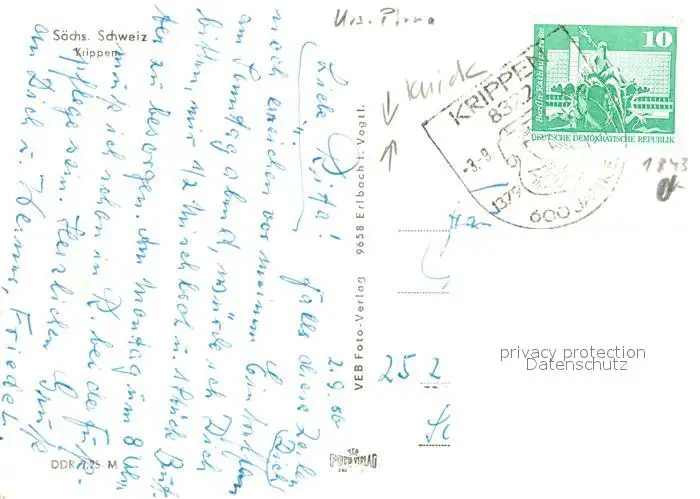 Sächs. Schweiz
Krippen
Urs. Pirna
Knick
KRIPPEN
83
-3.-8
1379
600 JAHRE
10
Berlin Rathausstraße
DEUTSCHE DEMOKRATISCHE REPUBLIK
1843
2.9.80
Liebe Rita!
Falls diese Zeilen Dich
noch erreichen vor meinem Eintreffen
am Sonntag abend, würde ich Dich
bitten, mir 1/2 Mischbrot u. 1 Stück But-
ter zu besorgen. Am Montag um 8 Uhr
muß ich schon in D. bei der Fuß-
pflege sein. Herzlichen Gruß
an Dich u. Werner, Friedel
VEB Foto-Verlag 9658 Erlbach i. Vogtl.
252
FOTO VERLAG
DDR 1,25 M
privacy protection
Datenschutz